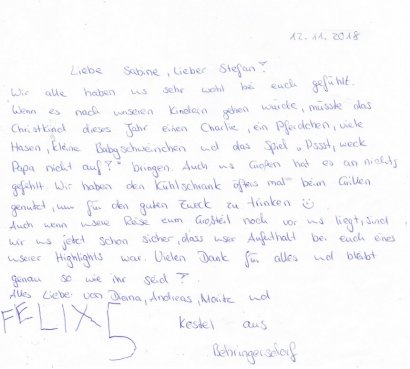 12.11.2018
Liebe Sabine, Lieber Stefan!
Wir alle haben uns sehr wohl bei euch gefühlt.
Wenn es nach unseren Kindern gehen würde, müsste das
Christkind dieses Jahr einen Charlie, ein Pferdchen, viele
Hasen, kleine Babyschweinchen und das Spiel „Pssst, weck
Papa nicht auf!" bringen. Auch uns Großen hat es an nichts
gefehlt. Wir haben den Kühlschrank öfters mal beim Grillen
genutzt, um für den guten Zweck zu trinken ☺
Auch wenn unsere Reise zum Großteil noch vor uns liegt, sind
wir uns jetzt schon sicher, dass unser Aufenthalt bei euch eines
unserer Highlights war. Vielen Dank für alles und bleibt
genau so wie ihr seid!
Alles Liebe von Diana, Andreas, Moritz und
FELIX 5
Kestel aus
Behringersdorf